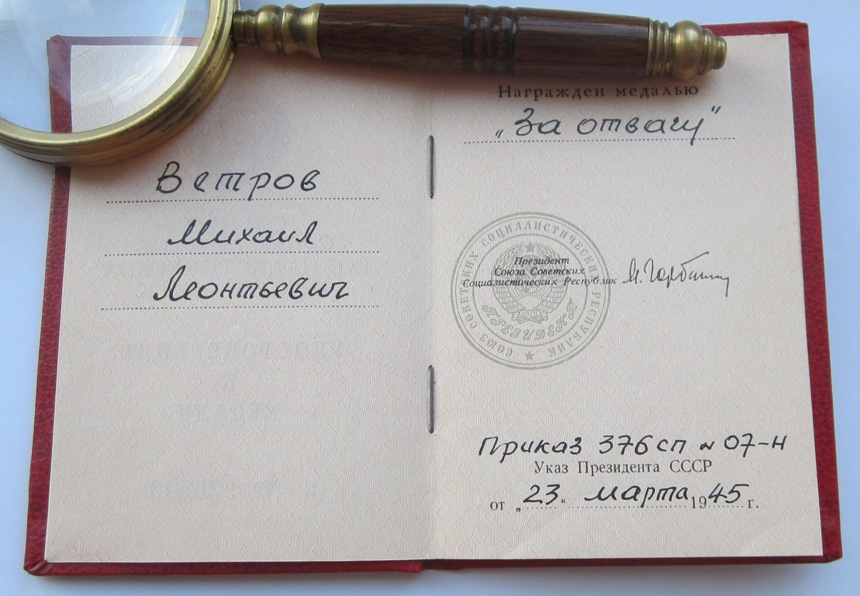 Ветров
Михаил
Леонтьевич
Награжден медалью
„За отвагу"
СОЮЗ СОВЕТСКИХ СОЦИАЛИСТИЧЕСКИХ РЕСПУБЛИК
Президент
Союза Советских
Социалистических Республик
ПРЕЗИДЕНТ
Приказ 376 сп № 07-н
Указ Президента СССР
от „23" марта 1945 г.